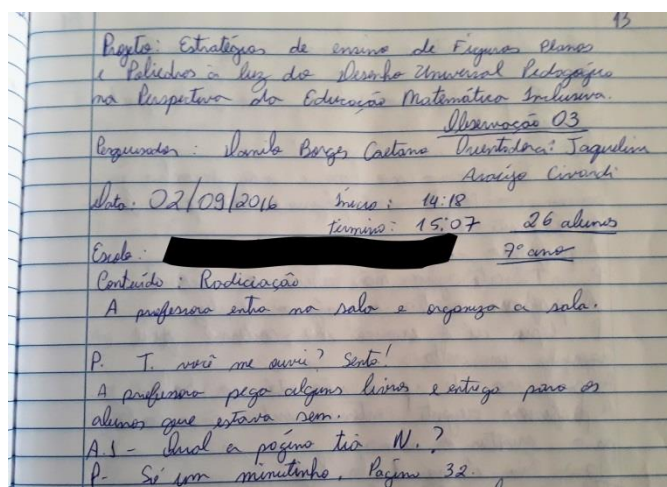 13
Projeto: Estratégias de ensino de Figuras Planas
e Poliedros à luz do Desenho Universal Pedagógico
na Perspectiva da Educação Matemática Inclusiva.
Observação 03
Pesquisador: Danilo Borges Caetano Orientadora: Jaqueline
Araújo Civardi
Data: 02/09/2016 Início: 14:18
término: 15:07 26 alunos
Escola: 7º ano
Conteúdo: Radiciação
A professora entra na sala e organiza a sala.
P. T. você me ouviu? Senta!
A professora pega alguns livros e entrega para os
alunos que estava sem.
A.1 - Qual a página tia N.?
P- Só um minutinho. Página 32.